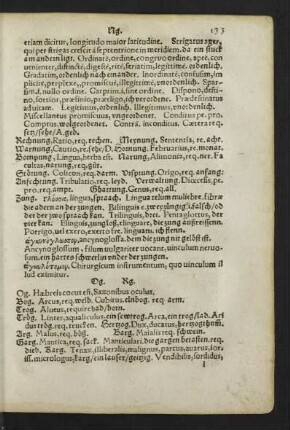 Ng. 133
etiam dicitur, longitudo maior latitudine. Strigatus ager,
qui per strigas crescit à septentrione in meridiem. da ein stuck
am andern ligt. Ordinatè, ordine, congruo ordine, aptè, con
uenienter, distinctè, digestè, ritè, seriatim, legitimè. ordenlich.
Gradatim, ordenlich nach einander. Inordinatè, confusim, im
plicitè, perplexe, promiscuè, illegitimè, vnordenlich. Spar-
sim, sine nullo ordine. Carptim, sine ordine. Dispono, desti-
no, sortior, præfinio, præligo, ich verordene. Prædestinatus
adiutare. Legitimus, ordenlich. Illegitimus, vnordenlich.
Miscellaneus promiscuus, vngeordenet. Conditus pe. pro.
Compos. wolgeordenet. Contrà. inconditus. Cætera re q.
setz/sehe/A. ged.
Rechnung, Ratio, req. rechen. Meynung, Sententia, re. acht.
Warnung, Cautio, re. sehe/D. Hornung, Februarius, re. monat.
Bompung, Lingua, herba est. Narung, Alimonia, req. ner. Fa
cultas, narung, req. güt.
Störung, Colicon, req. darm. Vrsprung, Origo, req. anfang.
Anfechtung, Tribulatio, req. leyd. Verwaltung, Diœcesis, pe.
pro. req. ampt. Gbattung, Genus, req. all.
Zung, γλῶσσα, lingua, sprach. Lingua telum muliebre. fibræ
die adern an der zungen. Bilinguis e, zweyzüngig/falsch/o-
der der zwo sprach kan. Trilinguis, drei. Pentaglottos, der
vier kan. Elinguis, zungloß, elinguare, die zung außreissenn.
Porrigo, uel exero, exerto fre. linguam, ich strecken.
ἀγκυλόγλωσσον, ancynoglossa. dem die zung nit gelöst ist.
Ancynoglossum, filum uulgariter uocant, uinculum neruo-
sum. ein hartes schwerlin vnder der zungen.
ἀγκυλότομον, Chirurgicum instrumentum, quo uinculum il
lud eximitur.
Og. Rg.
Og. Hæbreis cocus est, Saxonibus oculus,
Bog, Arcus, req. welb. Cubitus, elnbog, req. arm.
Trog, Alueus, require bad/born.
Trög, Linter, aqualiculus, ein sewtrog. Arca, ein trog/lad. Ari
dus trög, req. trucken. Hertzog, Dux, ducatus, hertzogthum.
Arg, Malus, req. böß. Barg, Maialis req. schwein.
Garg, Mantica, req. sack. Manticulari, die gargen betasten, req.
dieb. Karg, Tenax, illiberalis, malignus, partus, auarus, sor.
iss. micrologus, karg/ein lauser/geitzig. Vendibilis, sordidus,
i